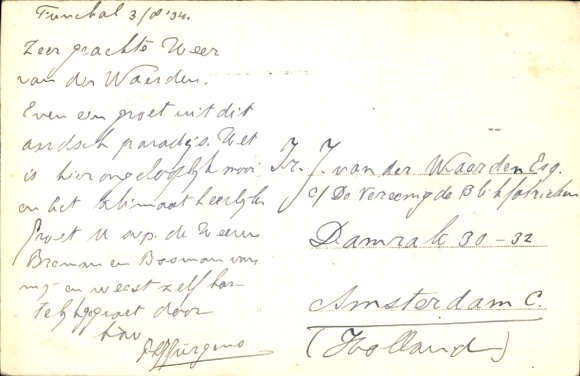 Funchal 3/8 '34.
Zeer geachte Heer
van der Waerden.
Even een groet uit dit
aardsch paradijs. Het
is hier ongelooflijk mooi
en het klimaat heerlijk.
Groet U s.v.p. de Heeren
Bremm en Bosman van
mij en weest zelf har-
telijk gegroet door
Ir. J. van der Waerden Esq.
c/o De Vereenigde Blikfabrieken
Damrak 30-32
Amsterdam C.
(Holland)